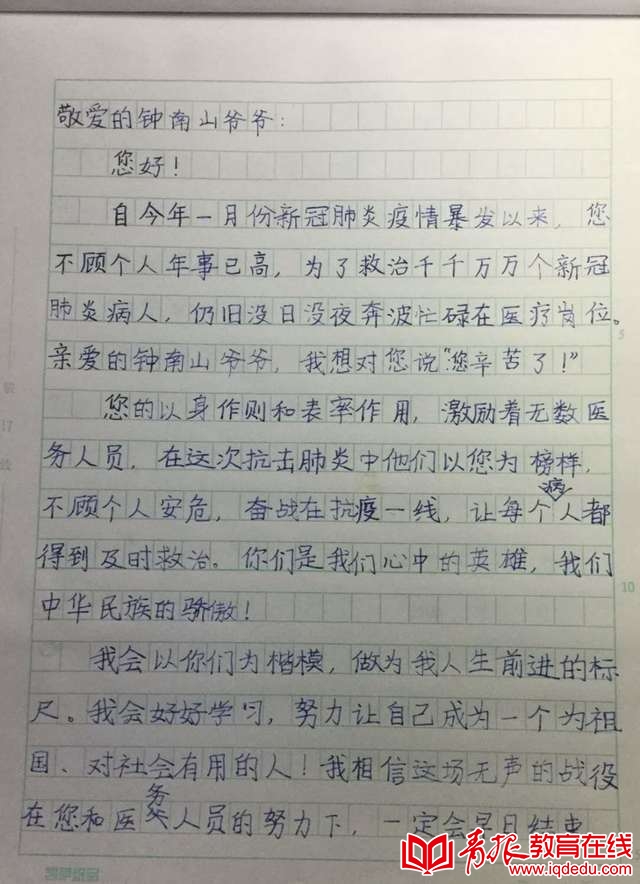 敬爱的钟南山爷爷：
您好！
自今年一月份新冠肺炎疫情暴发以来，您
不顾个人年事已高，为了救治千千万万个新冠
肺炎病人，仍旧没日没夜奔波忙碌在医疗岗位。
亲爱的钟南山爷爷，我想对您说“您辛苦了！”
您的以身作则和表率作用，激励着无数医
务人员，在这次抗击肺炎中他们以您为榜样，
不顾个人安危，奋战在抗疫一线，让每个病人都
得到及时救治。你们是我们心中的英雄，我们
中华民族的骄傲！
我会以你们为楷模，做为我人生前进的标
尺。我会好好学习，努力让自己成为一个为祖
国、对社会有用的人！我相信这场无声的战役
在您和医务人员的努力下，一定会早日结束
5
10
青报教育在线
www.iqdedu.com